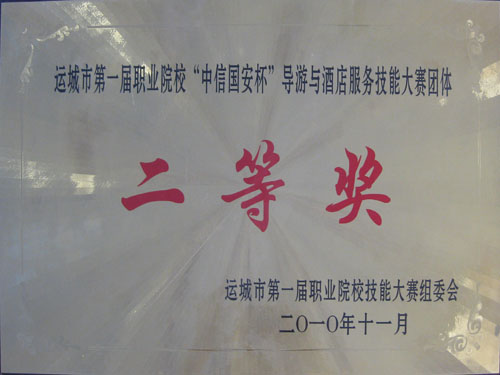 运城市第一届职业院校“中信国安杯”导游与酒店服务技能大赛团体
二等奖
运城市第一届职业院校技能大赛组委会
二〇一〇年十一月